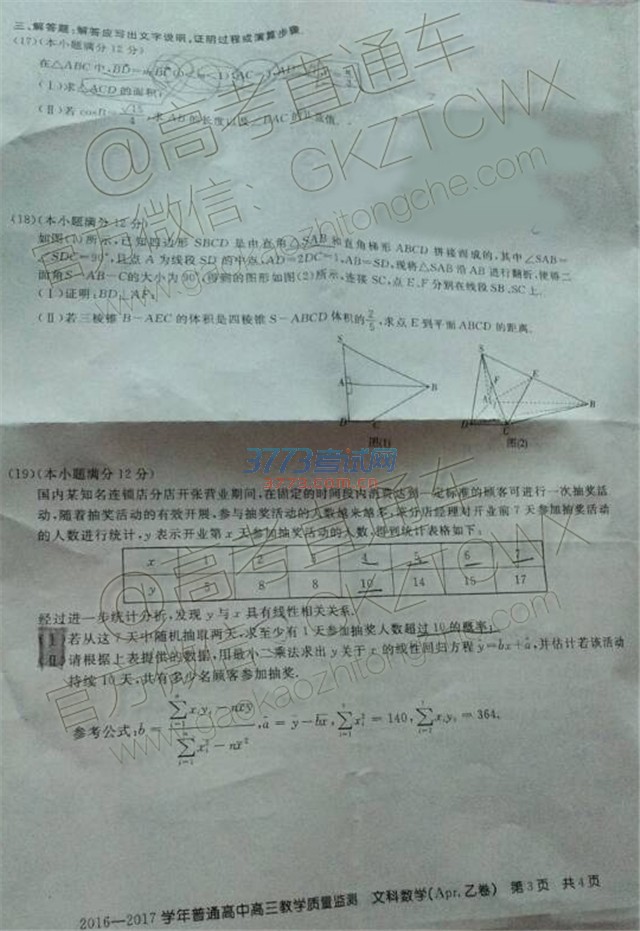 三、解答题:解答应写出文字说明,证明过程或演算步骤.
(17)(本小题满分12分)
在△ABC中,
(Ⅰ)求△ACD的面积;
(Ⅱ)若cosB=√15/4,求AB的长度以及∠BAC的正弦值.
(18)(本小题满分12分)
如图(1)所示,已知四边形SBCD是由直角△SAB和直角梯形ABCD拼接而成的,其中∠SAB=
∠SDC=90°,且点A为线段SD的中点,AD=2DC=1,AB=SD,现将△SAB沿AB进行翻折,使得二
面角S-AB-C的大小为90°,得到的图形如图(2)所示,连接SC,点E、F分别在线段SB、SC上.
(Ⅰ)证明:BD⊥AF;
(Ⅱ)若三棱锥B-AEC的体积是四棱锥S-ABCD体积的2/5,求点E到平面ABCD的距离.
S
A
B
D
C
图(1)
S
F
E
A
B
D
C
图(2)
(19)(本小题满分12分)
国内某知名连锁店分店开张营业期间,在固定的时间段内消费达到一定标准的顾客可进行一次抽奖活
动,随着抽奖活动的有效开展,参与抽奖活动的人数越来越多,该分店经理对开业前7天参加抽奖活动
的人数进行统计,y表示开业第x天参加抽奖活动的人数,得到统计表格如下:
x 1 2 3 4 5 6 7
y 5 8 8 10 14 15 17
经过进一步统计分析,发现y与x具有线性相关关系.
(Ⅰ)若从这7天中随机抽取两天,求至少有1天参加抽奖人数超过10的概率;
(Ⅱ)请根据上表提供的数据,用最小二乘法求出y关于x的线性回归方程ŷ=b̂x+â,并估计若该活动
持续10天,共有多少名顾客参加抽奖.
参考公式:b̂=(∑xᵢyᵢ-nx̄ȳ)/(∑xᵢ²-nx̄²),â=ȳ-b̂x̄,∑xᵢ²=140,∑xᵢyᵢ=364.
2016—2017学年普通高中高三教学质量监测 文科数学(Apr.乙卷) 第3页 共4页
@高考直通车
官方微信:GKZTCWX
www.gaokaozhitongche.com
3773考试网